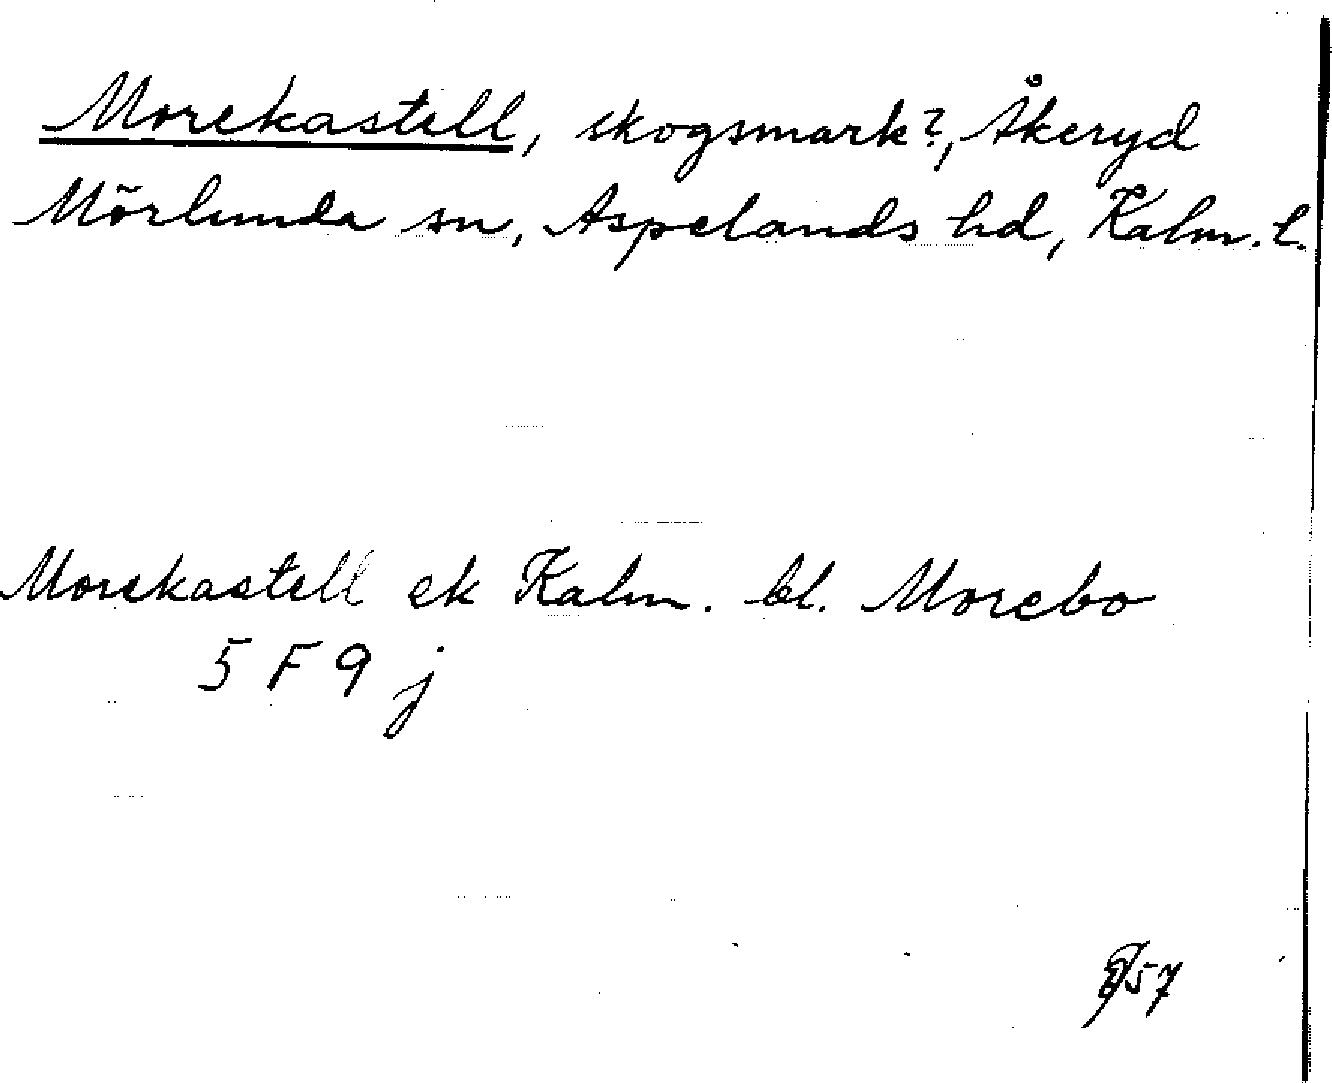 Morekastell, skogsmark?, Åkeryd
Mörlunda sn, Aspelands hd, Kalm. l.
Morekastell ek Kalm. bl. Morebo
5 F 9 j
57